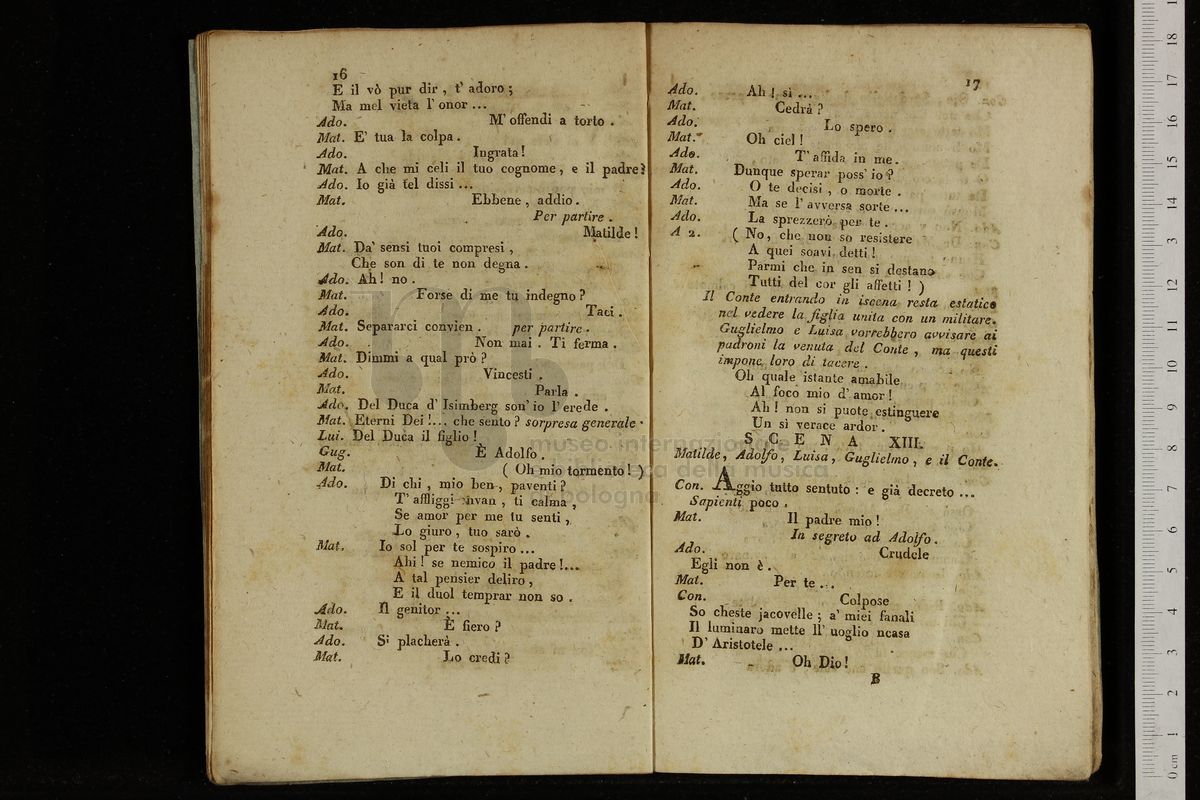 16
E il vò pur dir , t' adoro ;
Ma mel vieta l' onor ...
Ado. M' offendi a torto .
Mat. E' tua la colpa .
Ado. Ingrata !
Mat. A che mi celi il tuo cognome , e il padre ?
Ado. Io già tel dissi ...
Mat. Ebbene , addio .
Per partire .
Ado. Matilde !
Mat. Da' sensi tuoi compresi ,
Che son di te non degna .
Ado. Ah ! no .
Mat. Forse di me tu indegno ?
Ado. Taci .
Mat. Separarci convien . per partire .
Ado. Non mai . Ti ferma .
Mat. Dimmi a qual prò ?
Ado. Vincesti .
Mat. Parla .
Ado. Del Duca d' Isimberg son' io l' erede .
Mat. Eterni Dei !... che sento ? sorpresa generale .
Lui. Del Duca il figlio !
Gug. È Adolfo .
Mat. ( Oh mio tormento ! )
Ado. Di chi , mio ben , paventi ?
T' affliggi invan , ti calma ,
Se amor per me tu senti ,
Lo giuro , tuo sarò .
Mat. Io sol per te sospiro ...
Ahi ! se nemico il padre !...
A tal pensier deliro ,
E il duol temprar non so .
Ado. Il genitor ...
Mat. È fiero ?
Ado. Si placherà .
Mat. Lo credi ?
17
Ado. Ah ! sì ...
Mat. Cedrà ?
Ado. Lo spero .
Mat. Oh ciel !
Ado. T' affida in me .
Mat. Dunque sperar poss' io ?
Ado. O te decisi , o morte .
Mat. Ma se l' avversa sorte ...
Ado. La sprezzerò per te .
A 2. ( No , che non so resistere
A quei soavi detti !
Parmi che in sen si destano
Tutti del cor gli affetti ! )
Il Conte entrando in iscena resta estatico
nel vedere la figlia unita con un militare.
Guglielmo e Luisa vorrebbero avvisare ai
padroni la venuta del Conte , ma questi
impone loro di tacere .
Oh quale istante amabile
Al foco mio d' amor !
Ah ! non si puote estinguere
Un sì verace ardor .
S C E N A XIII.
Matilde , Adolfo , Luisa , Guglielmo , e il Conte.
Con. Aggio tutto sentuto : e già decreto ...
Sapienti poco .
Mat. Il padre mio !
In segreto ad Adolfo .
Ado. Crudele
Egli non è .
Mat. Per te ...
Con. Colpose
So cheste jacovelle ; a' miei fanali
Il luminaro mette ll' uoglio ncasa
D' Aristotele ...
Mat. Oh Dio !
B
museo internazionale
della musica
bologna
0 cm 1 2 3 4 5 6 7 8 9 10 11 12 13 14 15 16 17 18